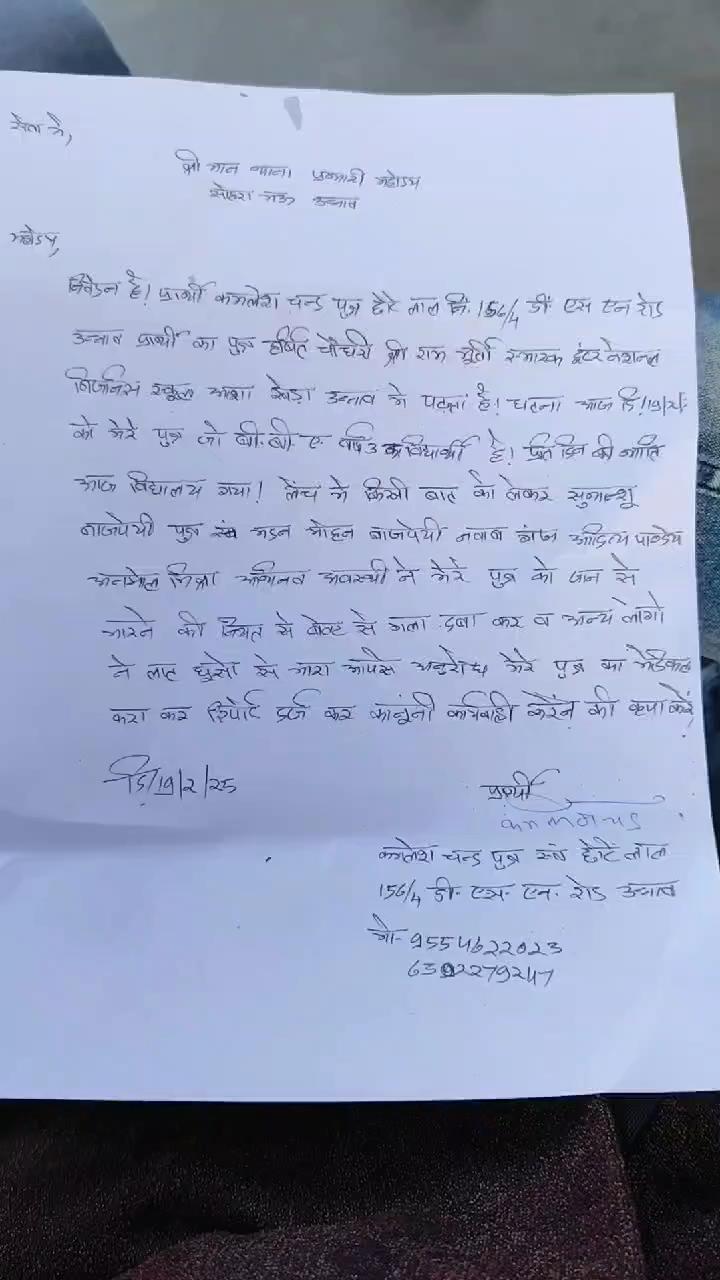 सेवा में,
श्री मान थाना प्रभारी महोदय
सोहरा मऊ उन्नाव
महोदय,
निवेदन है। प्रार्थी कमलेश चन्द्र पुत्र छोटे लाल नि. 156/4 डी एस एन रोड
उन्नाव प्रार्थी का पुत्र हर्षित चौधरी श्री राम मूर्ती स्मारक इंटर नेशनल
बिजनिस स्कूल आशा खेड़ा उन्नाव मे पढ़ता है। घटना आज दि। 19/2/
को मेरे पुत्र जो बी.बी ए वर्ष 3 का विद्यार्थी है। प्रति दिन की भाति
आज विद्यालय गया। लंच मे किसी बात को लेकर सुभान्शू
बाजपेयी पुत्र स्व मदन मोहन बाजपेयी नवाब गंज आदित्य पाण्डेय
अनमोल मिश्रा अभिनव अवस्थी ने मेरे पुत्र को जान से
मारने की नियत से बेल्ट से गला दबा कर व अन्य लोगो
ने लात घुसो से मारा आपसे अनुरोध मेरे पुत्र का मेडिकल
करा कर रिपोर्ट दर्ज कर कानूंनी कार्यवाही करेंने की कृपा करें
दि/19/2/25
प्रार्थी
कमलेश चन्द्र पुत्र स्व छोटे लाल
156/4 डी. एस. एन. रोड उन्नाव
मो- 9554622023
6302279247